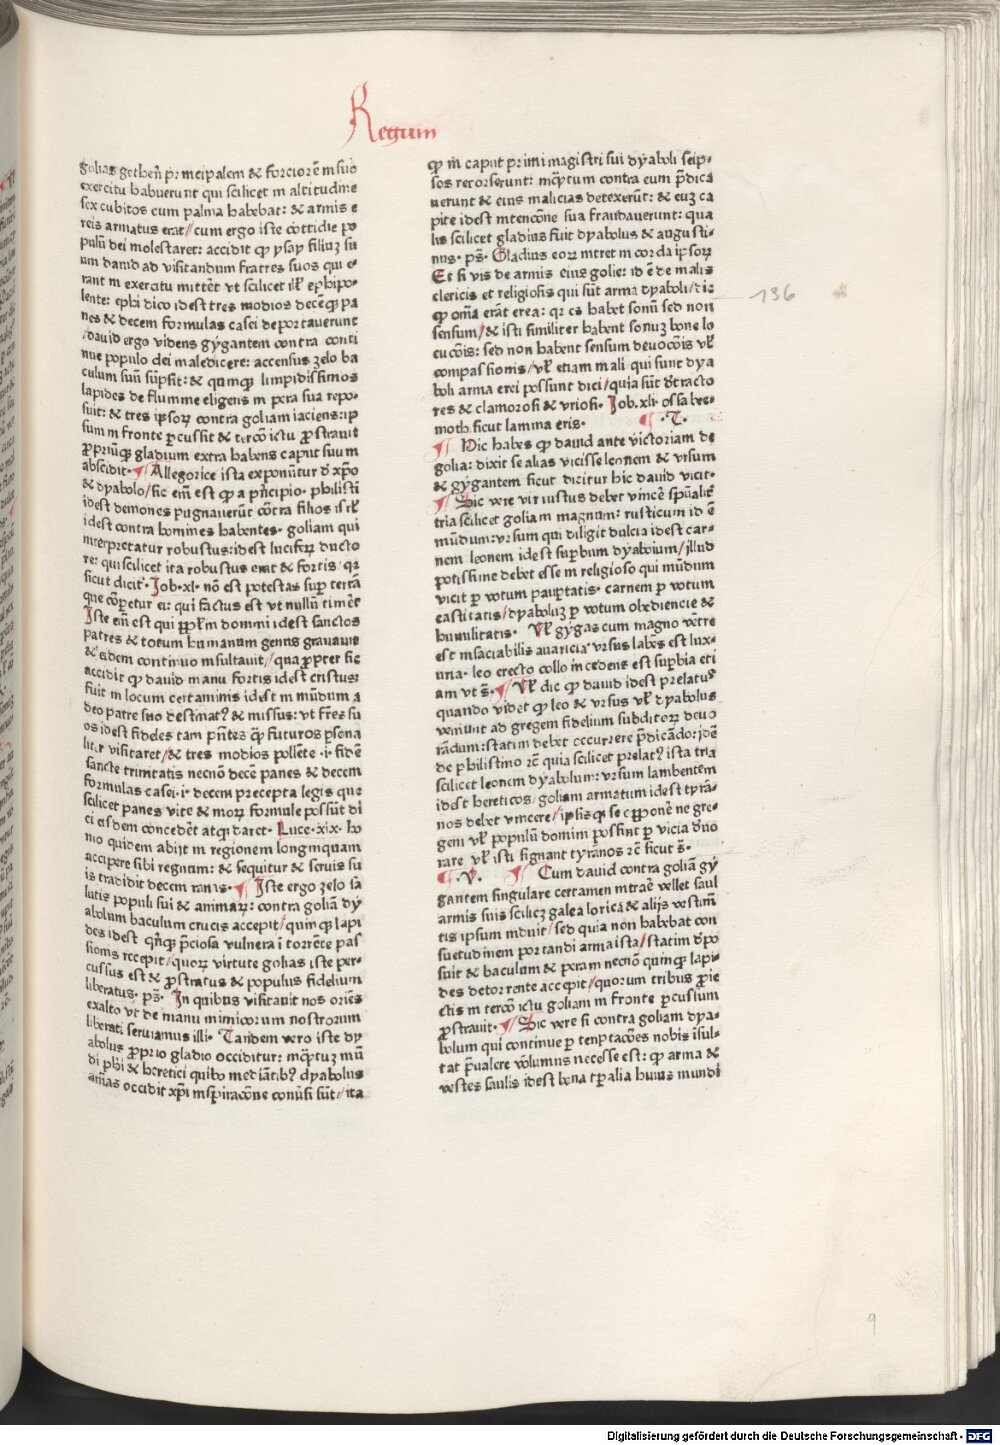 Regum
golias getheñ principalem & forciorē in suo
exercitu habuerunt qui scilicet in altitudine
sex cubitos cum palma habebat: & armis e
reis armatus erat/cum ergo iste cottidie po
pulū dei molestaret: accidit ꝙ ysay filiuꝫ su
um dauid ad visitandum fratres suos qui e
rant in exercitu mitteret vt scilicet
lente: ephi dico idest tres modios decēqꝫ pa
nes & decem formulas casei deportauerunt
/dauid ergo videns gygantem contra conti
nue populo dei maledicere: accensus zelo ba
culum suū sūpsit: & quinqꝫ limpidissimos
lapides de flumine eligens in pera sua repo-
suit: & tres ipsoꝝ contra goliam iaciens: ip
sum in fronte ꝑcussit & tercō ictu ꝓstrauit
ꝓpriūqꝫ gladium extra habens caput suum
abscidit. ¶ Allegorice ista exponūtur ď xp̄o
& dyabolo/sic em̄ est ꝙ a pn̄cipio. philisti
idest demones pugnauerūt cōtra filios isrl̄
idest contra homines habentes. goliam qui
interpretatur robustus: idest luciferꝝ ducto
re: qui scilicet ita robustus erat & fortis/qꝛ
sicut dicit̄. Job. xl. nō est potestas suꝑ terrā
que cōꝑetur ei: qui factus est vt nullū timeret
Iste em̄ est qui ppl̄m domini idest sanctos
patres & totum humanum genus grauauit
& eidem continuo insultauit,/quapropter sic
accidit ꝙ dauid manu fortis idest cristus:
fuit in locum certaminis idest in mūdum a
deo patre suo destinatꝰ & missus: vt frēs su
os idest fideles tam pn̄tes ꝙ̄ futuros ꝑsona
liter visitaret/& tres modios pollēte .i. fidē
sancte trinitatis necnō decē panes & decem
formulas casei .i. decem precepta legis que
scilicet panes vite & moꝝ formule possūt di
ci eisdem concedēt atqꝫ daret. Luce. xix. ho
mo quidem abijt in regionem longinquam
accipere sibi regnum: & sequitur & seruis su
is tradidit decem ¶ Iste ergo zelo sa
lutis populi sui & animaꝝ: contra goliā dy
abolum baculum crucis accepit/quinqꝫ lapi
des idest qn̄qꝫ p̄ciosa vulnera i torrēte pas
sionis recepit/quoꝝ virtute golias iste per-
cussus est & ꝓstratus & populus fidelium
liberatus. ps̄. In quibus visitauit nos oriēs
exalto vt de manu inimicorum nostrorum
liberati seruiamus illi. Tandem vero iste dy
abolus ꝓprio gladio occiditur: inqͥtuꝫ mū
di phi & heretici quibꝰ mediātibꝰ dyabolus
aīmas occidit xp̄i inspiracōne conuersi sūt:/ita
ꝙ in̄ caput primi magistri sui dyaboli seip-
sos retorserunt: inqͥtum contra eum p̄dica
uerunt & eius malicias detexerūt: & euꝫ ca
pite idest intencōne sua fraudauerunt: qua
lis scilicet gladius fuit dyabolus & augusti-
nus. ps̄. Gladius eoꝝ intret in corda ipsoꝝ
Et si vis de armis eius golie: id ē de malis
clericis et religiosis qui sūt arma dyaboli/dic
ꝙ om̄a erāt erea: qꝛ es habet sonū sed non
sensum/& isti similiter habent sonuꝫ bone lo
cucōis: sed non habent sensum deuocōis vl̄
compassionis/vl̄ etiam mali qui sunt dya
boli arma erei possunt dici/quia sūt ďtracto
res & clamorosi & vriosi. Job. xli. ossa bee-
moth sicut lamina eris. ¶ .T.
¶ Hic habes ꝙ dauid ante victoriam de
golia: dixit se alias vicisse leonem & vrsum
& gygantem sicut dicitur hic dauid vicit.
¶ Sic vere vir iustus debet vincē sp̄ualit̄
tria scilicet goliam magnum: rusticum id ē
mūdum: vrsum qui diligit dulcia idest car-
nem leonem idest suꝑbum dyabolum/illud
potissime debet esse in religioso qui mūdum
vicit ꝑ votum pauꝑtatis. carnem ꝑ votum
castitatis/dyaboluꝫ ꝑ votum obediencie &
humilitatis. Vl̄ gygas cum magno vētre
est insaciabilis auaricia/vrsus labēs est lux-
uria. leo erecto collo incedens est suꝑbia eti
am vt s̄. ¶ Vl̄ dic ꝙ dauid idest prelatus
quando videt ꝙ leo & vrsus vl̄ dyabolus
veniunt ad gregem fidelium subditoꝝ deuo
rādum: statim debet occurrere p̄dicādo: idē
de philistino rc̄ quia scilicet prelatꝰ ista tria
scilicet leonem dyabolum: vrsum lambentem
idest hereticos/goliam armatum idest tyrā-
nos debet vincere/ipsisqꝫ se opponē ne gre-
gem vl̄ populū domini possint ꝑ vicia ďuo
rare, vl̄ isti signant tyrānos rc̄ sicut s̄.
¶ .V. ¶ Cum dauid contra goliā gy
gantem singulare certamen intrarē vellet saul
armis suis scilicꝫ galea lorica & alijs vestimē
tis ipsum induit/sed quia non habebat con
suetudinem portandi arma ista/statim ďpo
suit & baculum & peram necnō quinqꝫ lapi-
des detorrente accepit/quorum tribus ꝓie
ctis in tercō ictu goliam in fronte ꝑcussum
ꝓstrauit. ¶ Sic vere si contra goliam dya-
bolum qui continue ꝑ temptacōes nobis isul-
tat p̄ualere volumus necesse est: ꝙ arma &
vestes saulis idest bona tꝑalia huius mundi
136
9
Digitalisierung gefördert durch die Deutsche Forschungsgemeinschaft - DFG